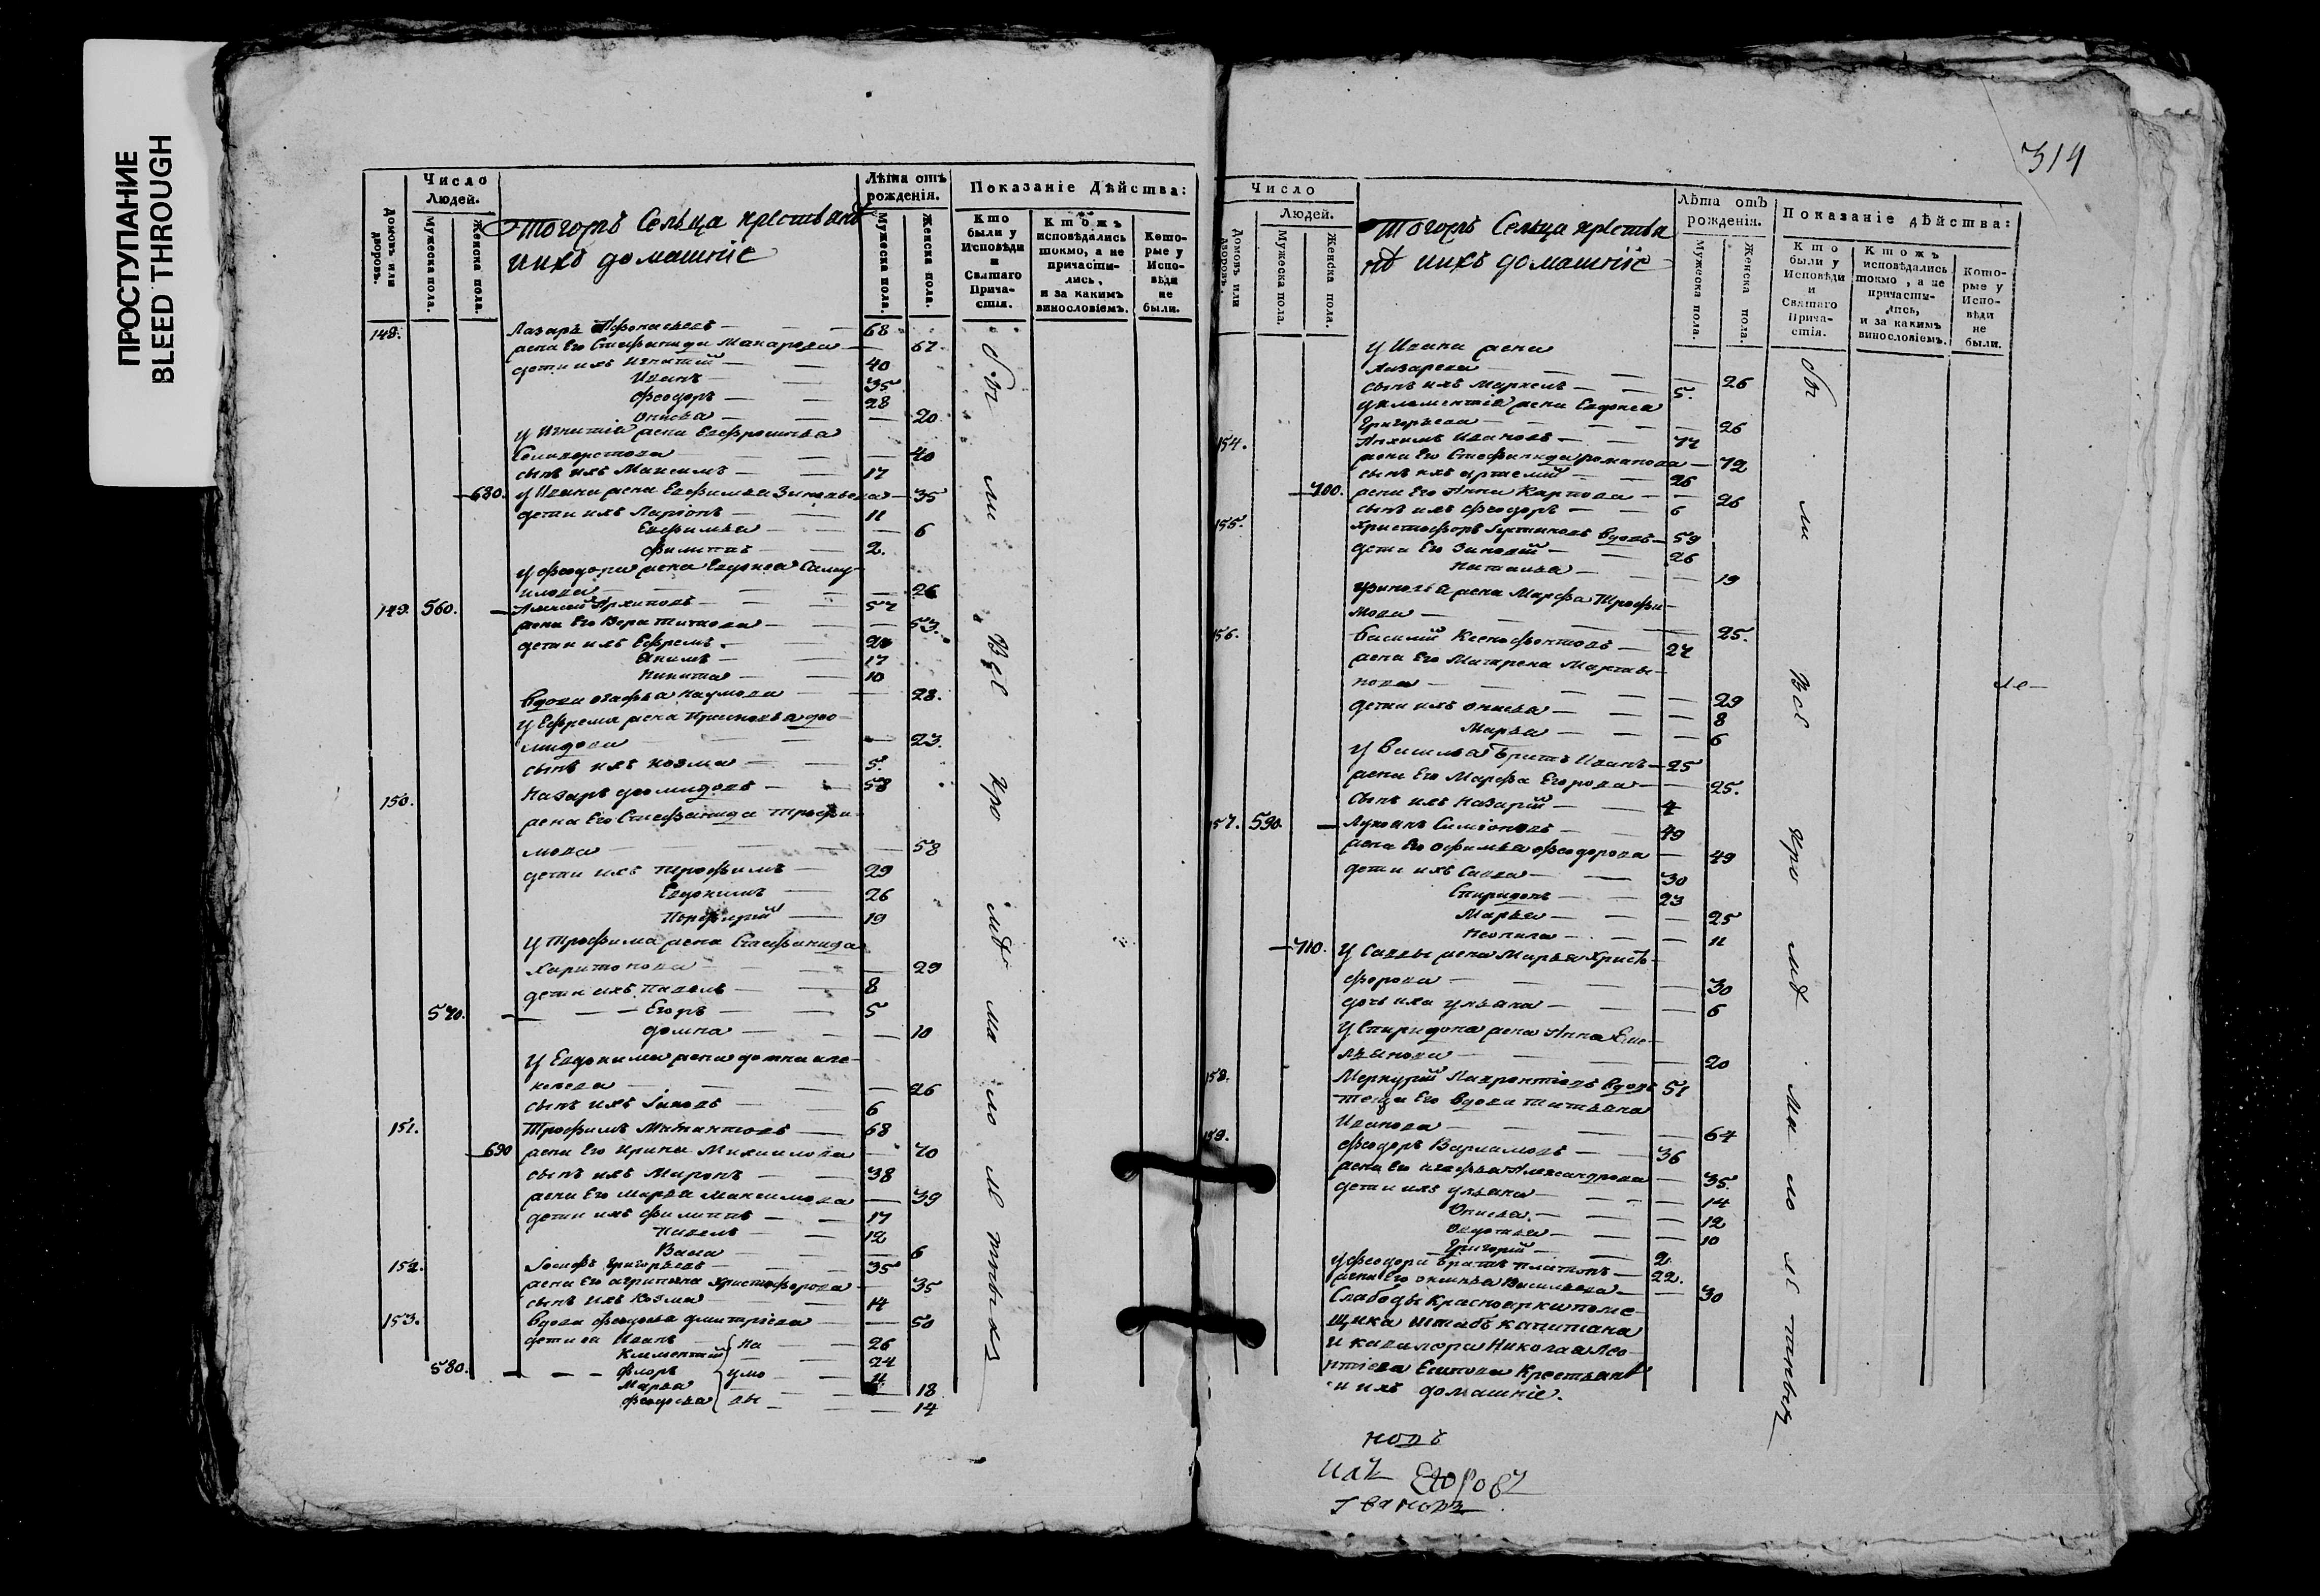 ПРОСТУПАНИЕ
BLEED THROUGH
Число
Людей.
Домовъ или дворовъ.
Мужеска пола.
Женска пола.
Тогожъ Сельца крестьянѣ
и ихъ домашніе
Лѣта отъ рожденія.
Мужеска пола.
Женска пола.
Показаніе Дѣйства:
Кто были у Исповѣди и Святаго Прича-стія.
Ктожъ исповѣдались токмо, а не причасти-лись, и за какимъ винословіемъ.
Кото-рые у Испо-вѣди не были.
148. Лазарь Афонасьевъ — 68
жена Его Стефанида Макарова — 67
дети ихъ Игнатій — 40
Иванъ — 35
Феодоръ — 28
Анисья — 20
у Игнатія жена Евфросинья
Селиверстова — 40
сынъ ихъ Максимъ — 17
680. у Ивана жена Евфимья Зиновьева — 35
дети ихъ Ларіонъ — 11
Евфимья — 6
Филиппъ — 2
у Феодора жена Евдокея Саму-
илова — 26
149. 560. Алексей Архиповъ — 57
жена Его Вера Титова — 53
дети ихъ Ефремъ — 24
Акимъ — 17
Никита — 10
вдова Агафья Наумова — 28
у Ефрема жена Прасковья Дио-
мидова — 23
сынъ ихъ Козма — 5
150. Назаръ Диомидовъ — 58
жена Его Стефанида Трофи-
мова — 58
дети ихъ Трофимъ — 29
Евдокимъ — 26
Порфирій — 19
у Трофима жена Стефанида
Харитонова — 29
дети ихъ Павелъ — 8
570. Егоръ — 5
Домна — 10
у Евдокима жена Домна Але-
ксеева — 26
сынъ ихъ Іаковъ — 6
151. Трофимъ — 68
690 жена Его Ирина Михаилова — 70
сынъ ихъ Миронъ — 38
жена Его Марья Максимова — 39
дети ихъ Филиппъ — 17
Павелъ — 12
Васса — 6
152. Іосифъ Григорьевъ — 35
жена Его Агрипена Христофорова — 35
сынъ ихъ Козма — 14
153. Вдова Феодосья Дмитріева — 50
дети ея Иванъ — 26
Климентій — 24
580. Флоръ — 11
Марья — 18
Феодосья — 14
Наумовы
бы ли Всѣ Про мѣ ма ло лѣ тныхъ
314
Число
Людей.
Домовъ или дворовъ.
Мужеска пола.
Женска пола.
Тогожъ Сельца крестья
нѣ и ихъ домашніе
Лѣта отъ рожденія.
Мужеска пола.
Женска пола.
Показаніе дѣйства:
Кто были у Исповѣди и Святаго Прича-стія.
Ктожъ исповѣдались токмо, а не причасти-лись, и за какимъ винословіемъ.
Кото-рые у Испо-вѣди не были.
у Ивана жена
Лазарева — 26
сынъ ихъ Маркелъ — 5
у Климентія жена Евдокея
Григорьева — 26
154. Ивановъ — 77
жена Его Стефанида Романова — 72
сынъ ихъ Артемій — 26
700. жена Его Анна Карпова — 26
сынъ ихъ Феодоръ — 6
155. Христофоръ Іустиновъ вдовъ — 59
дети Его Зиновій — 26
Наталья — 19
у Зиновья жена Марфа Трофи-
мова — 25
156. Василій Ксенофонтовъ — 27
жена Его Матрена Марты-
нова — 29
дети ихъ Анисья — 8
Марья — 6
у Василья братъ Иванъ — 25
жена Его Марфа Егорова — 25
сынъ ихъ Назарій — 4
157. 590. Лукіанъ Симіоновъ — 49
жена Его Офимья Феодорова — 49
дети ихъ Савва — 30
Спиридонъ — 23
Марья — 25
Неонила — 11
710. у Саввы жена Марья Христо-
форова — 30
дочь ихъ Ульяна — 6
у Спиридона жена Анна Еме-
льянова — 20
158. Меркурій Лаврентіевъ вдовъ 51
теща Его вдова Татьяна
Иванова — 64
159. Феодоръ Варламовъ — 36
жена Его Агафья Александрова — 35
дети ихъ Ульяна — 14
Анисья — 12
Авдотья — 10
Григорій — 2
у Феодора братъ Платонъ — 22
жена Его Аксинья Васильева — 30
Слабоды Красноярки поме-
щика штабъ капитана
и кавалера Николая Лео-
нтіева Есипова Крестьянѣ
и ихъ домашніе.
бы ли Всѣ Про мѣ ма ло лѣ тныхъ
новъ
Егоровъ
Івановъ